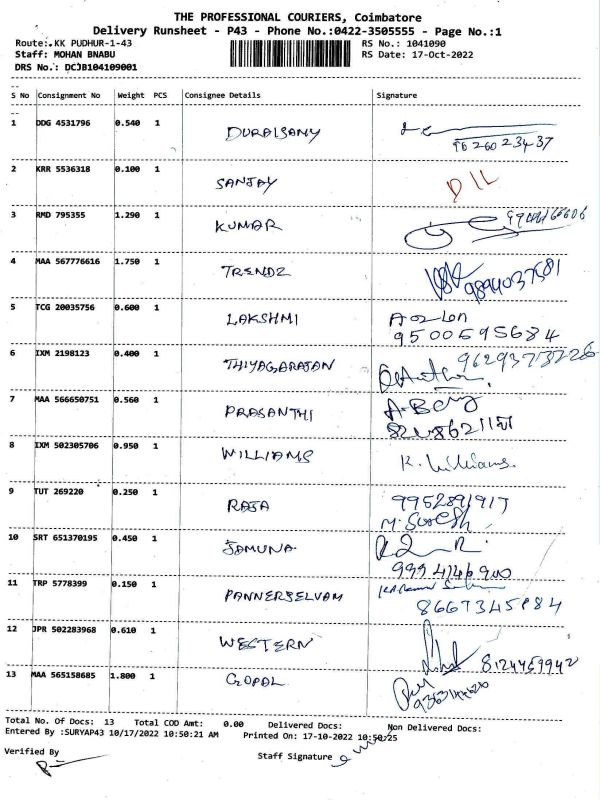 THE PROFESSIONAL COURIERS, Coimbatore
Delivery Runsheet - P43 - Phone No.:0422-3505555 - Page No.:1
Route:.KK PUDHUR-1-43 RS No.: 1041090
Staff: MOHAN BNABU RS Date: 17-Oct-2022
DRS No.: DCJB104109001
S No Consignment No Weight PCS Consignee Details Signature
1 DDG 4531796 0.540 1 DURAISAMY
96260 23437
2 KRR 5536318 0.100 1 SANJAY DIL
3 RMD 795355 1.290 1 KUMAR
4 MAA 567776616 1.750 1 TRENDZ
9894037581
5 TCG 20035756 0.600 1 LAKSHMI
9500595684
6 IXM 2198123 0.400 1 THIYAGARAJAN 9629373226
7 MAA 566650751 0.560 1 PRASANTHI
8 IXM 502305706 0.950 1 WILLIAMS K. Williams.
9 TUT 269220 0.250 1 RAJA 9952891917
M. Suresh
10 SRT 651370195 0.450 1 JAMUNA
9994146900
11 TRP 5778399 0.150 1 PANNERSELVAM
8667345984
12 JPR 502283968 0.610 1 WESTERN 8124459942
13 MAA 565158685 1.800 1 GOPAL
Total No. Of Docs: 13 Total COD Amt: 0.00 Delivered Docs: Non Delivered Docs:
Entered By :SURYAP43 10/17/2022 10:50:21 AM Printed On: 17-10-2022 10:50:25
Verified By Staff Signature